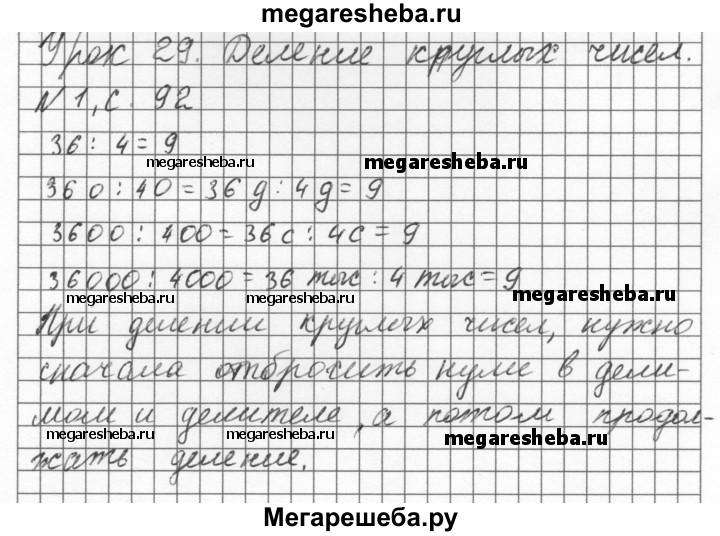 megaresheba.ru
Урок 29. Деление круглых чисел.
№ 1, с. 92
36 : 4 = 9
megaresheba.ru megaresheba.ru
360 : 40 = 36 д : 4 д = 9
3600 : 400 = 36 с : 4 с = 9
36000 : 4000 = 36 тыс : 4 тыс = 9
megaresheba.ru megaresheba.ru megaresheba.ru
При делении круглых чисел, нужно
сначала отбросить нули в дели-
мом и делителе, а потом продол-
megaresheba.ru megaresheba.ru megaresheba.ru
жать деление.
Мегарешеба.ру